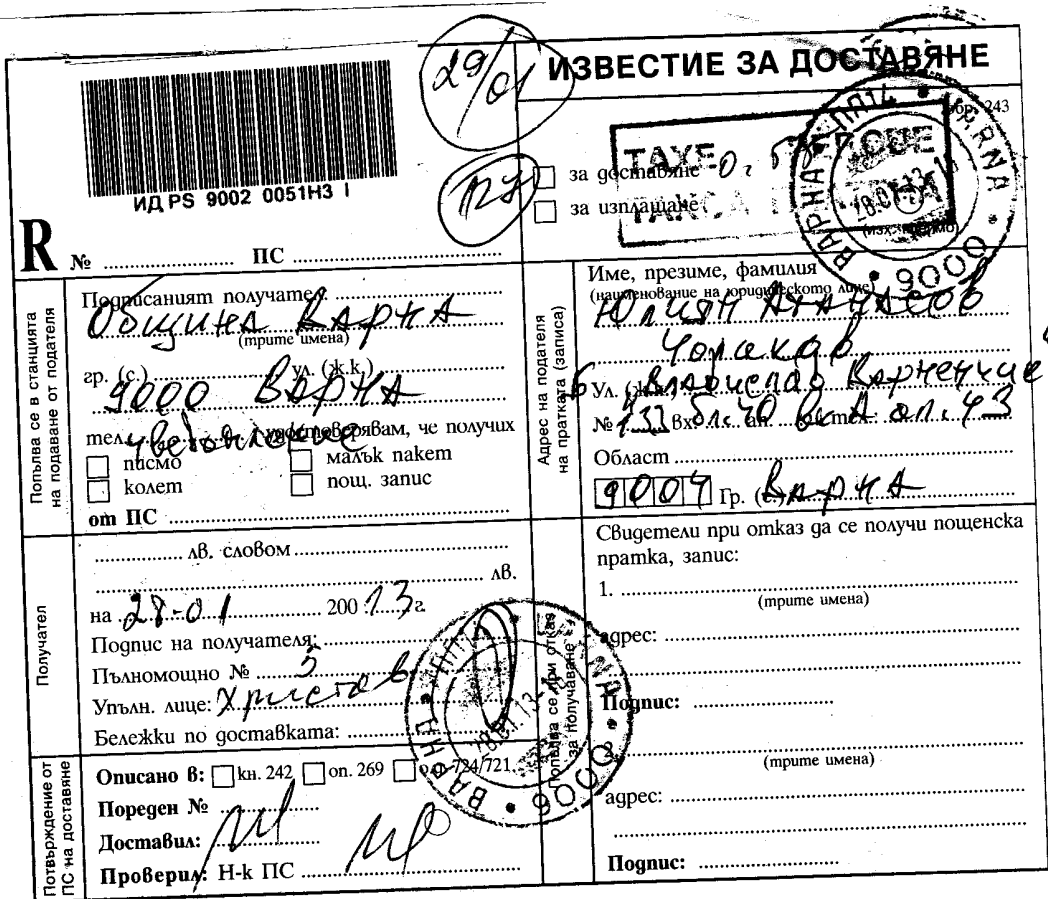 29/01
ИЗВЕСТИЕ ЗА ДОСТАВЯНЕ
обр. 243
TAXE
ИД PS 9002 0051H3 I
за доставяне
за изплащане
R № ПС
Попълва се в станцията на подаване от подателя
Подписаният получател:
Община Варна
(трите имена)
гр. (с.) ул. (ж.к.)
9000 Варна
тел. удостоверявам, че получих
писмо малък пакет
колет пощ. запис
от ПС
Адрес на подателя на пратката (записа)
Име, презиме, фамилия
(наименование на юридическото лице)
Юлиян Атанасов
Чолаков
Ул. (ж.к.) Владислав Варненчик
№ 133 бл. 40 вх. А ап. 43
Област
9004 Гр. (с.) Варна
Получател
лв. словом
лв.
на 28-01 200 13 г.
Подпис на получателя:
Пълномощно № 5
Упълн. лице: Христов
Бележки по доставката:
Попълва се при отказ за получаване
Свидетели при отказ да се получи пощенска
пратка, запис:
1.
(трите имена)
адрес:
Подпис:
2.
(трите имена)
адрес:
Подпис:
Потвърждение от ПС на доставяне
Описано в: кн. 242 оп. 269 оп. 724/721
Пореден №
Доставил:
Проверил: Н-к ПС
ВАРНА VARNA 9000
28.01.13